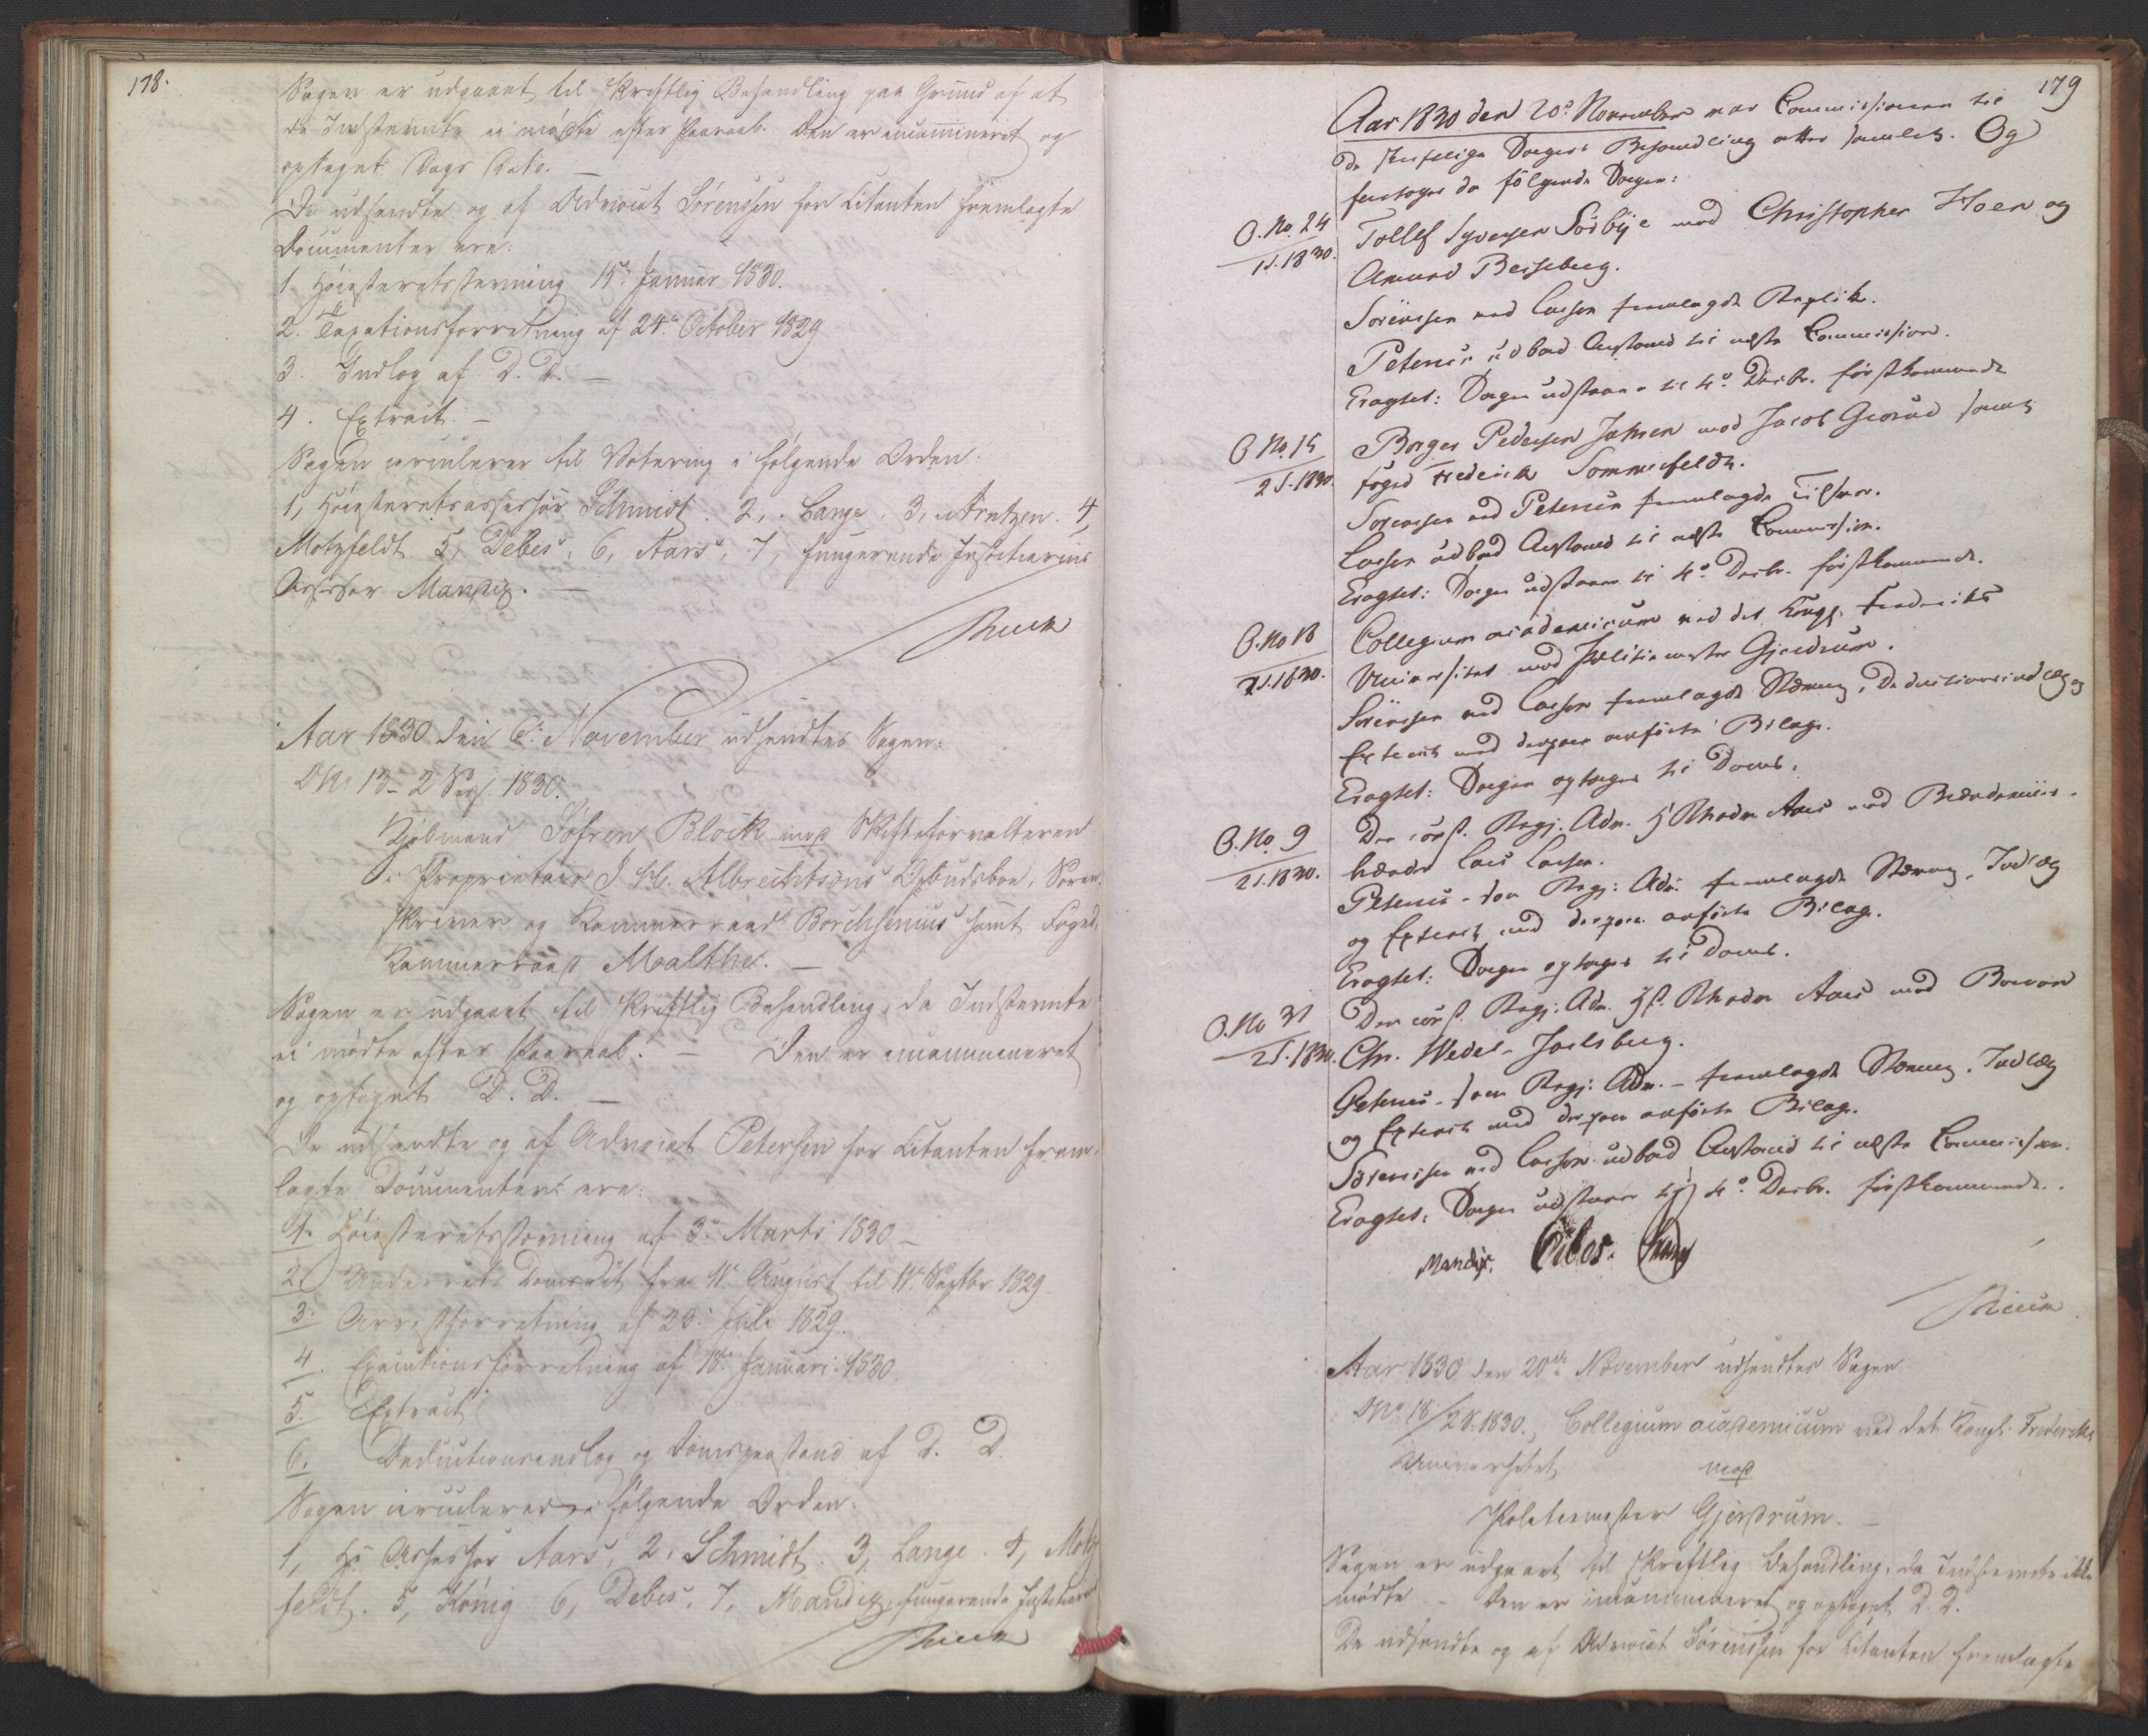 178.
Sagen er udgaaet til skriftlig Behandling paa Grund af at
de Indstevnte ei mødte efter Paaraab. Den er incamineret og
optaget Dags Dato. –
De udsendte og af Advocat Sörensen for Citanten fremlagte
Documenter ere:
1. Höiesteretsstevning 15de Januar 1830.
2. Taxationsforretning af 24de October 1829
3. Indlæg af D. D. –
4. Extract. –
Sagen circulerer til Votering i følgende Orden:
1, Höiesteretsassessor Schmidt. 2, Lange. 3, Arntzen. 4,
Motzfeldt 5, Debes, 6, Aars, 7, fungerende Justitiarius
Assessor Mandix. –
Aar 1830 den 6te November udsendtes Sagen:
No 13 – 2 Sess. 1830.
Kjöbmand Söfren Block mod Skifteforvalteren
i Proprietair J. H. Albrechtsons Opbudsboe, Soren-
skriver og Kammerraad Borchsenius samt Foged,
Kammerraad Malthe. –
Sagen er udgaaet til skriftlig Behandling, da Indstevnte
ei mødte efter Paaraab. – Den er incamineret
og optaget D. D. –
De udsendte og af Advocat Petersen for Citanten frem-
lagte Documenter ere:
1. Höiesteretsstevning af 3de Marts 1830 –
2. Underrets Domsact fra 11te August til 11te Septbr 1829
3. Arrestforretning af 23de Juli 1829.
4. Executionsforretning af 18de Januari 1830.
5. Extract
6. Deductionsindlæg og Domspaastand af D. D.
Sagen circulerer i følgende Orden:
1, Hr Assessor Aars, 2, Schmidt. 3, Lange. 4, Motz-
feldt. 5, König 6, Debes, 7, Mandix, fungerende Justitiarius
179
Aar 1830 den 20de November var Commissionen til
de skriftlige Sagers Behandling atter samlet. Og
foretoges da følgende Sager:
O. No. 24
1 S. 1830.
Tollef Syversen Sörbye mod Christopher Hoen og
Amund Berseberg.
Sörensen ved Larsen fremlagde Replik.
Petersen udbad Anstand til næste Commission.
Eragtet: Sagen udstaaer til 4de Decbr. førstkommende
O. No. 15
2 S. 1830.
Borger Pedersen Jahren mod Jacob Grorud samt
Foged Frederik Sommerfeldt.
Sörensen ved Petersen fremlagde Tilsvar.
Larsen udbad Anstand til næste Commission.
Eragtet: Sagen udstaaer til 4de Decbr. førstkommende.
O. No 18
2 S. 1830.
Collegium academicum ved det Kongl. Frederiks
Universitet mod Politiemester Gjerdrum.
Sörensen ved Larsen fremlagde Stevning, Deductionsindlæg og
Extract med derpaa anførte Bilage.
Eragtet: Sagen optages til Doms.
O. No. 9
2 S. 1830.
Den const. Regj. Adv. H Rhoden Aars mod
Lars Larsen.
Petersen – som Regj: Adv: fremlagde Stevning, Indlæg
og Extract med derpaa anførte Bilage.
Eragtet: Sagen optages til Doms.
O. No 31
2 S. 1830.
Den const. Regj: Adv. Rhoden Aars mod Baron
Chr. Wedel-Jarlsberg.
Petersen – som Regj: Adv. – fremlagde Stevning, Indlæg
og Extract med derpaa anførte Bilage.
Sörensen ved Larsen udbad Anstand til næste Commission.
Eragtet: Sagen udstaaer til 4de Decbr. førstkommende.
Mandix. Debes.
Aar 1830 den 20de November udsendtes Sagen
No 18/2 S. 1830., Collegium academicum ved det Kongl. Frederiks
Universitet mod
Politiemester Gjerdrum. –
Sagen er udgaaet til skriftlig Behandling, da Indstevnte ikke
mødte – Den er incamineret og optaget D. D.
De udsendte og af Advocat Sörensen for Citanten fremlagte